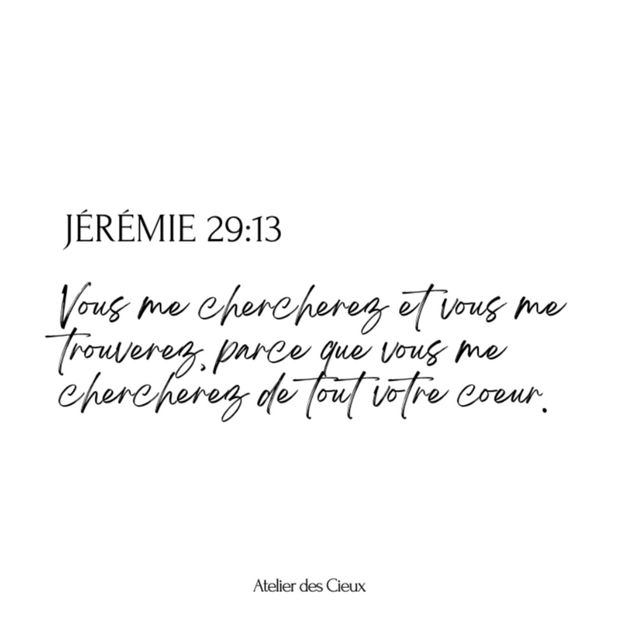 JÉRÉMIE 29:13
Vous me chercherez et vous me
trouverez, parce que vous me
chercherez de tout votre coeur.
Atelier des Cieux